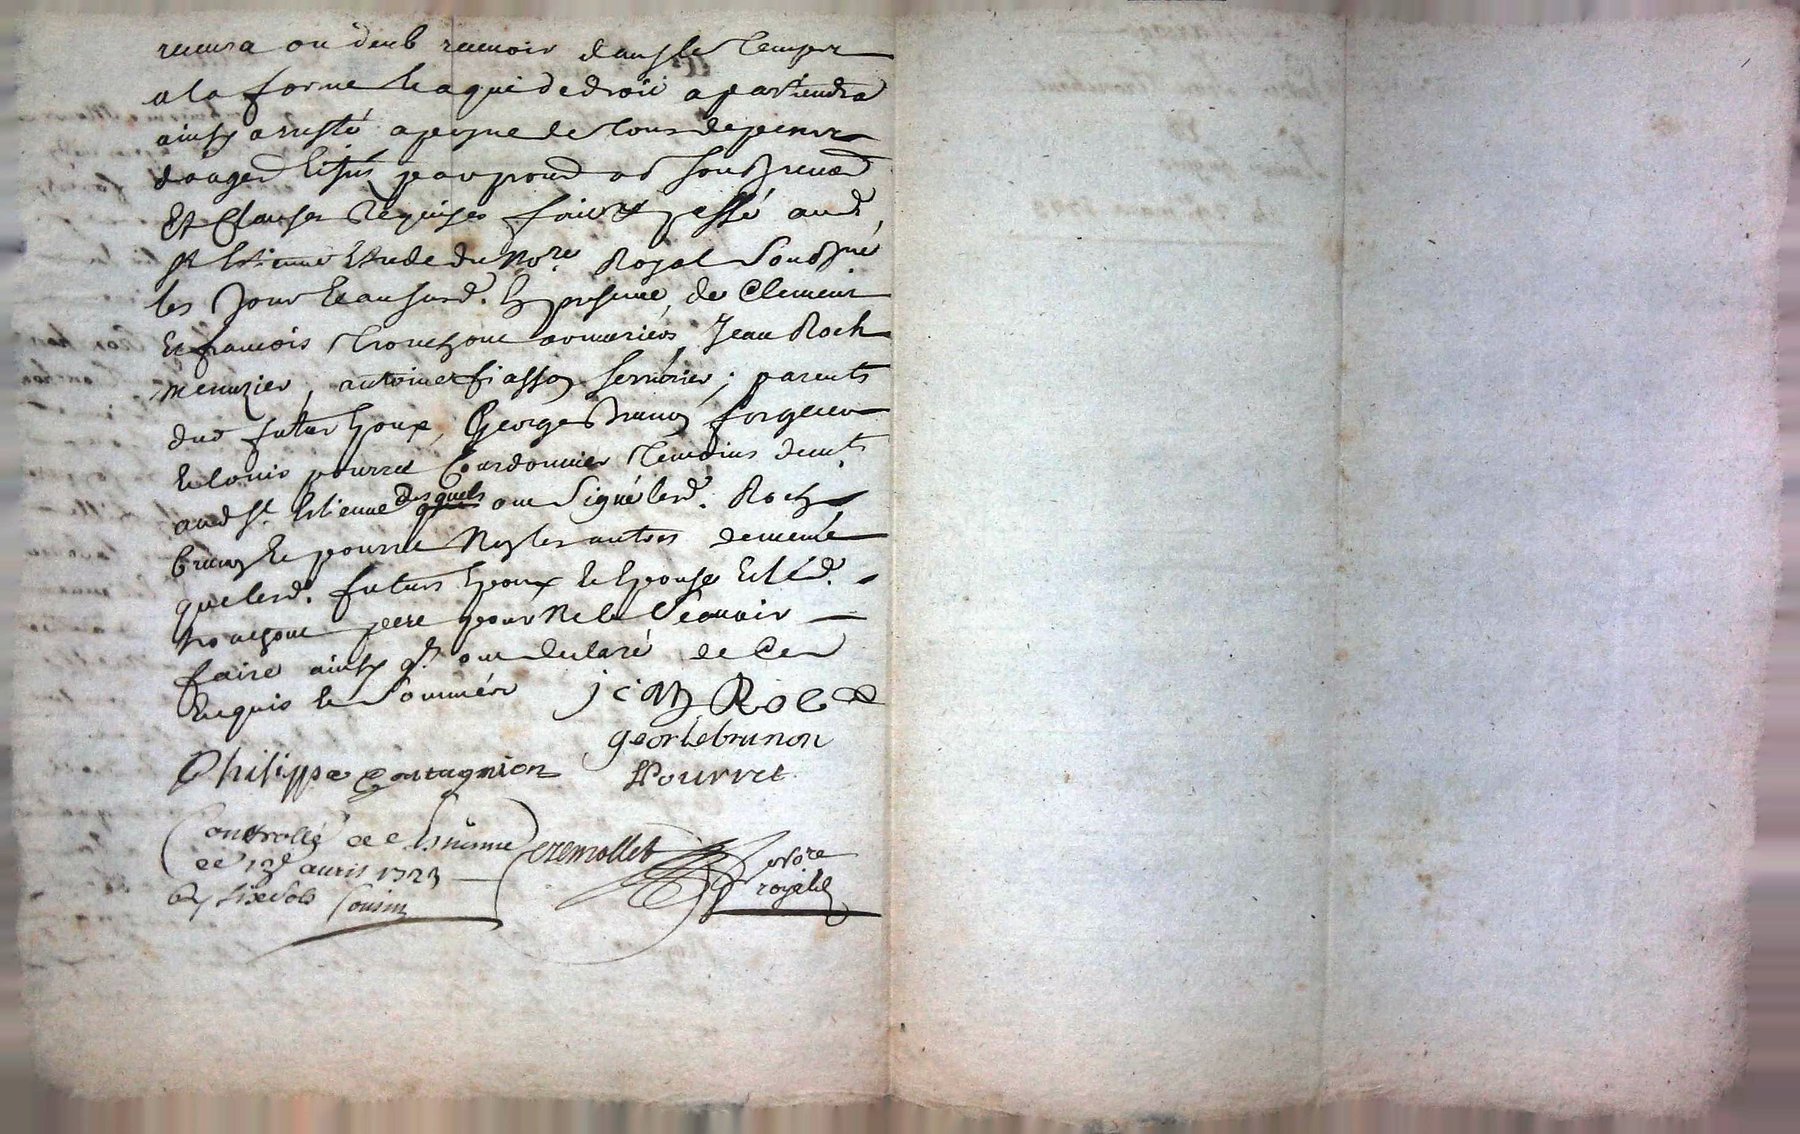 recevra ou deub recevoir dans le temps
a la forme et a qui de droit apartiendra
ainsy aresté a peyne de tous depens
Et clauses requises fait et passé aud
St Estienne Etude du Nore Royal soubsné
les Jour et an susd. En presence de Clement
Et francois tronchone armuriers, Jean Roch
menuzier, antoine fiasson serrurier; parents
dud futur Epoux, George brunon forgeur
Et louis pourret Courdonnier temoins demts
aud St. Estienne desquels ont signé lesd. Roch
brunon Et pourret Non les autres
que lesd. futurs Epoux Et Epouse Et led.
tronchone pere pour Ne le scavoir
faire ainsy qls ont declaré de ce
Enquis Et sommés
jean Roch
george brunon
Philippe
LPourret
Controllé a St Estienne
ce 13e avril 1723
six sols
Cousin
nore
royal